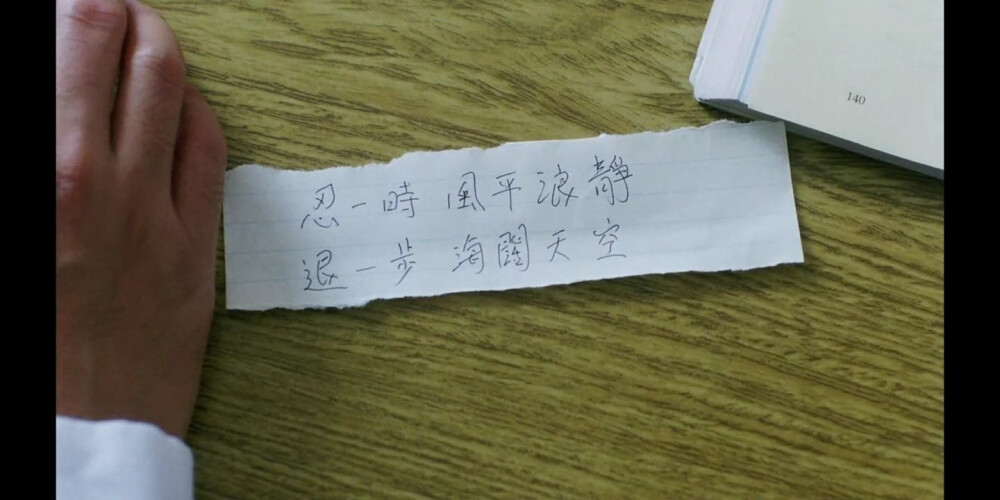 忍一時 風平浪靜
退一步 海闊天空
140